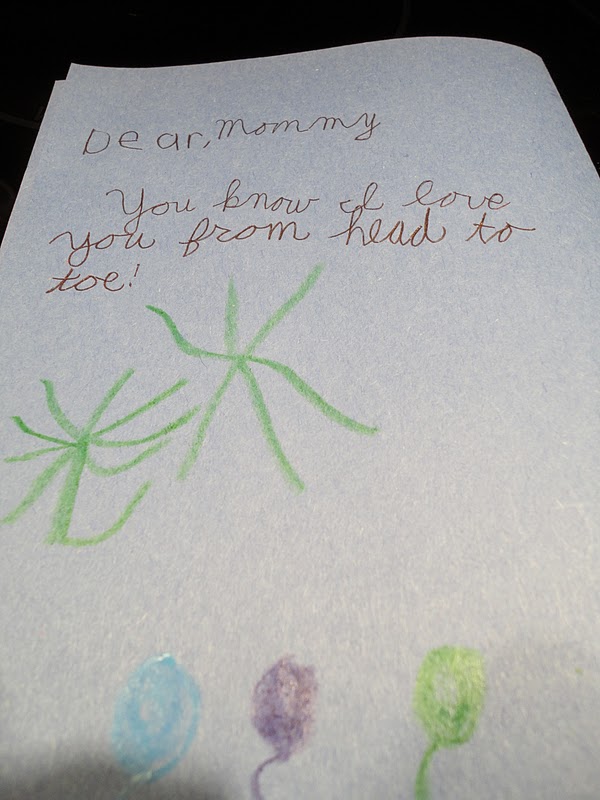 Dear, Mommy
You know I love
you from head to
toe!